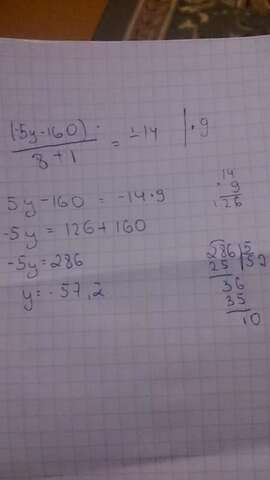 (-5y-160) · / 8+1 = -14 | · 9
5y-160 = -14·9
-5y = 126+160
-5y=286
y=-57,2
14
· 9
126
286|5
25 |52
36
35
10